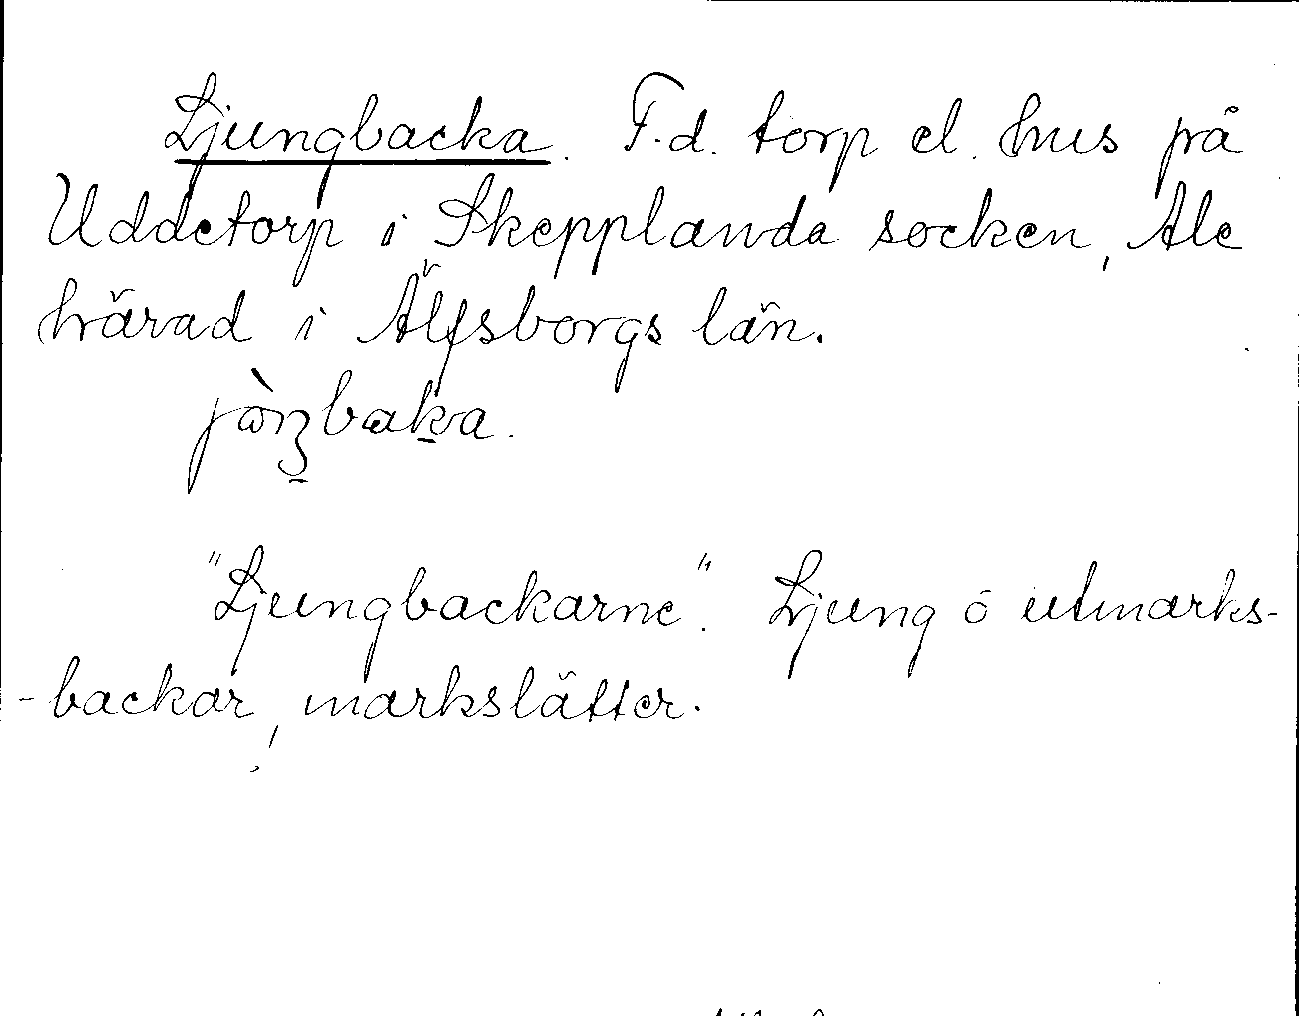 Ljungbacka. F.d. torp el. hus på
Uddetorp i Skepplanda socken, Ale
härad i Älfsborgs län.
"Ljungbackarne". Ljung ö utmarks-
-backar, markslätter.